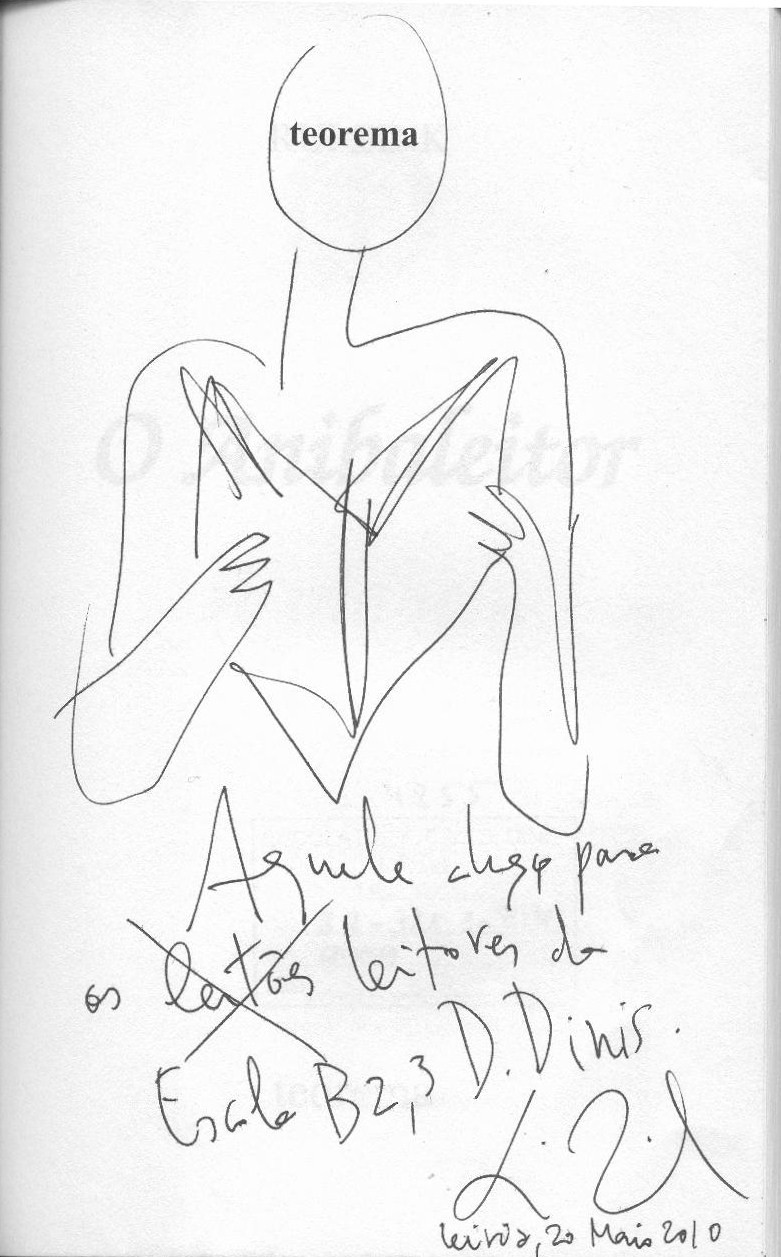 teorema
O Anibaleitor
Aquele abraço para
os leitões leitores da
Escola B2,3 D. Dinis.
Leiria, 20 Maio 2010